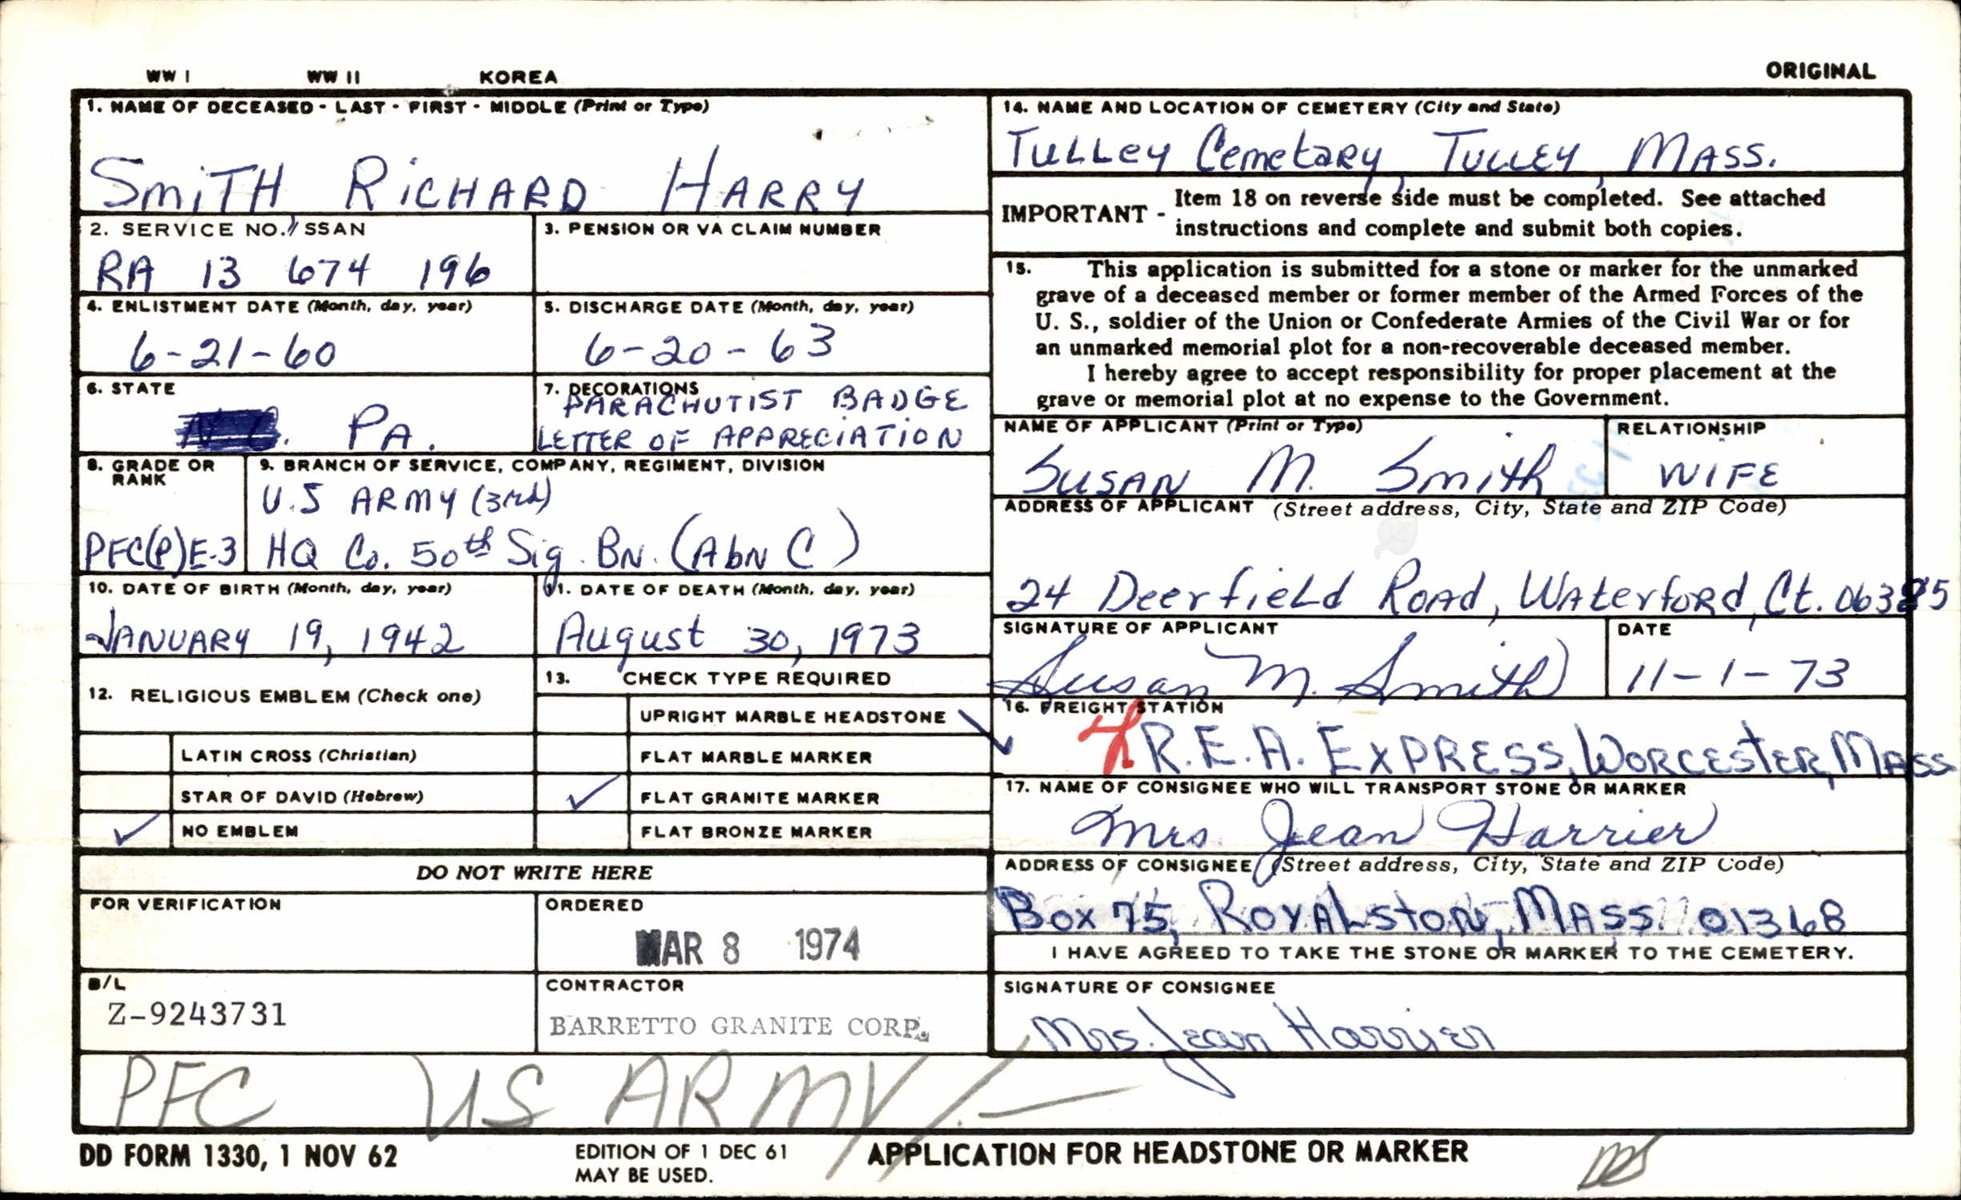 WW I WW II KOREA ORIGINAL
1. NAME OF DECEASED - LAST - FIRST - MIDDLE (Print or Type)
SMITH, RICHARD HARRY
2. SERVICE NO./SSAN
RA 13 674 196
3. PENSION OR VA CLAIM NUMBER
4. ENLISTMENT DATE (Month, day, year)
6-21-60
5. DISCHARGE DATE (Month, day, year)
6-20-63
6. STATE
PA.
7. DECORATIONS
PARACHUTIST BADGE
LETTER OF APPRECIATION
8. GRADE OR
RANK
PFC(P)E-3
9. BRANCH OF SERVICE, COMPANY, REGIMENT, DIVISION
U.S ARMY (3rd)
HQ Co. 50th Sig. BN. (AbN C)
10. DATE OF BIRTH (Month, day, year)
JANUARY 19, 1942
11. DATE OF DEATH (Month, day, year)
August 30, 1973
12. RELIGIOUS EMBLEM (Check one)
LATIN CROSS (Christian)
STAR OF DAVID (Hebrew)
✓ NO EMBLEM
13. CHECK TYPE REQUIRED
UPRIGHT MARBLE HEADSTONE
FLAT MARBLE MARKER
✓ FLAT GRANITE MARKER
FLAT BRONZE MARKER
DO NOT WRITE HERE
FOR VERIFICATION
ORDERED
MAR 8 1974
B/L
Z-9243731
CONTRACTOR
BARRETTO GRANITE CORP.
14. NAME AND LOCATION OF CEMETERY (City and State)
TULLEY Cemetary, TULLEY, MASS.
IMPORTANT - Item 18 on reverse side must be completed. See attached
instructions and complete and submit both copies.
15. This application is submitted for a stone or marker for the unmarked
grave of a deceased member or former member of the Armed Forces of the
U. S., soldier of the Union or Confederate Armies of the Civil War or for
an unmarked memorial plot for a non-recoverable deceased member.
I hereby agree to accept responsibility for proper placement at the
grave or memorial plot at no expense to the Government.
NAME OF APPLICANT (Print or Type)
SUSAN M. Smith
RELATIONSHIP
WIFE
ADDRESS OF APPLICANT (Street address, City, State and ZIP Code)
24 Deerfield Road, Waterford, Ct. 06385
SIGNATURE OF APPLICANT
Susan M. Smith
DATE
11-1-73
16. FREIGHT STATION
R.E.A. EXPRESS, WORCESTER, MASS
17. NAME OF CONSIGNEE WHO WILL TRANSPORT STONE OR MARKER
Mrs. Jean Harrier
ADDRESS OF CONSIGNEE (Street address, City, State and ZIP Code)
Box 75, ROYALSTON, MASS. 01368
I HAVE AGREED TO TAKE THE STONE OR MARKER TO THE CEMETERY.
SIGNATURE OF CONSIGNEE
Mrs. Jean Harrier
PFC US ARMY
DD FORM 1330, 1 NOV 62
EDITION OF 1 DEC 61
MAY BE USED.
APPLICATION FOR HEADSTONE OR MARKER